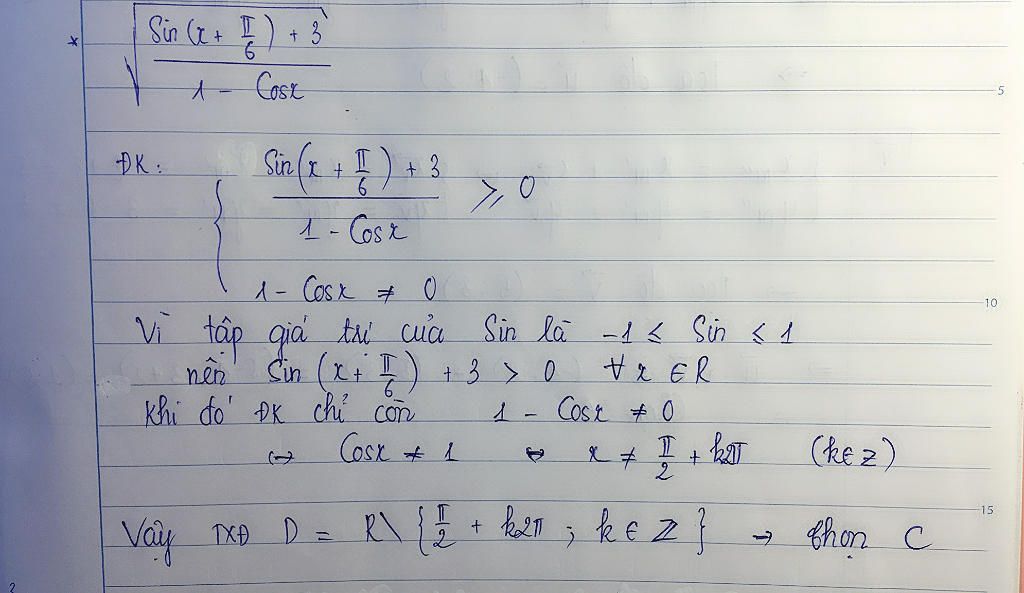 * √((Sin(x + π/6) + 3)/(1 - Cosx))
5
ĐK: { (Sin(x + π/6) + 3)/(1 - Cosx) ≥ 0
1 - Cosx ≠ 0
10
Vì tập giá trị của Sin là -1 ≤ Sin ≤ 1
nên Sin (x + π/6) + 3 > 0 ∀ x ∈ R
Khi đó ĐK chỉ còn 1 - Cosx ≠ 0
↔ Cosx ≠ 1 ↔ x ≠ π/2 + k2π (k ∈ Z)
15
Vậy TXĐ D = R\{π/2 + k2π ; k ∈ Z} → Chọn C
2